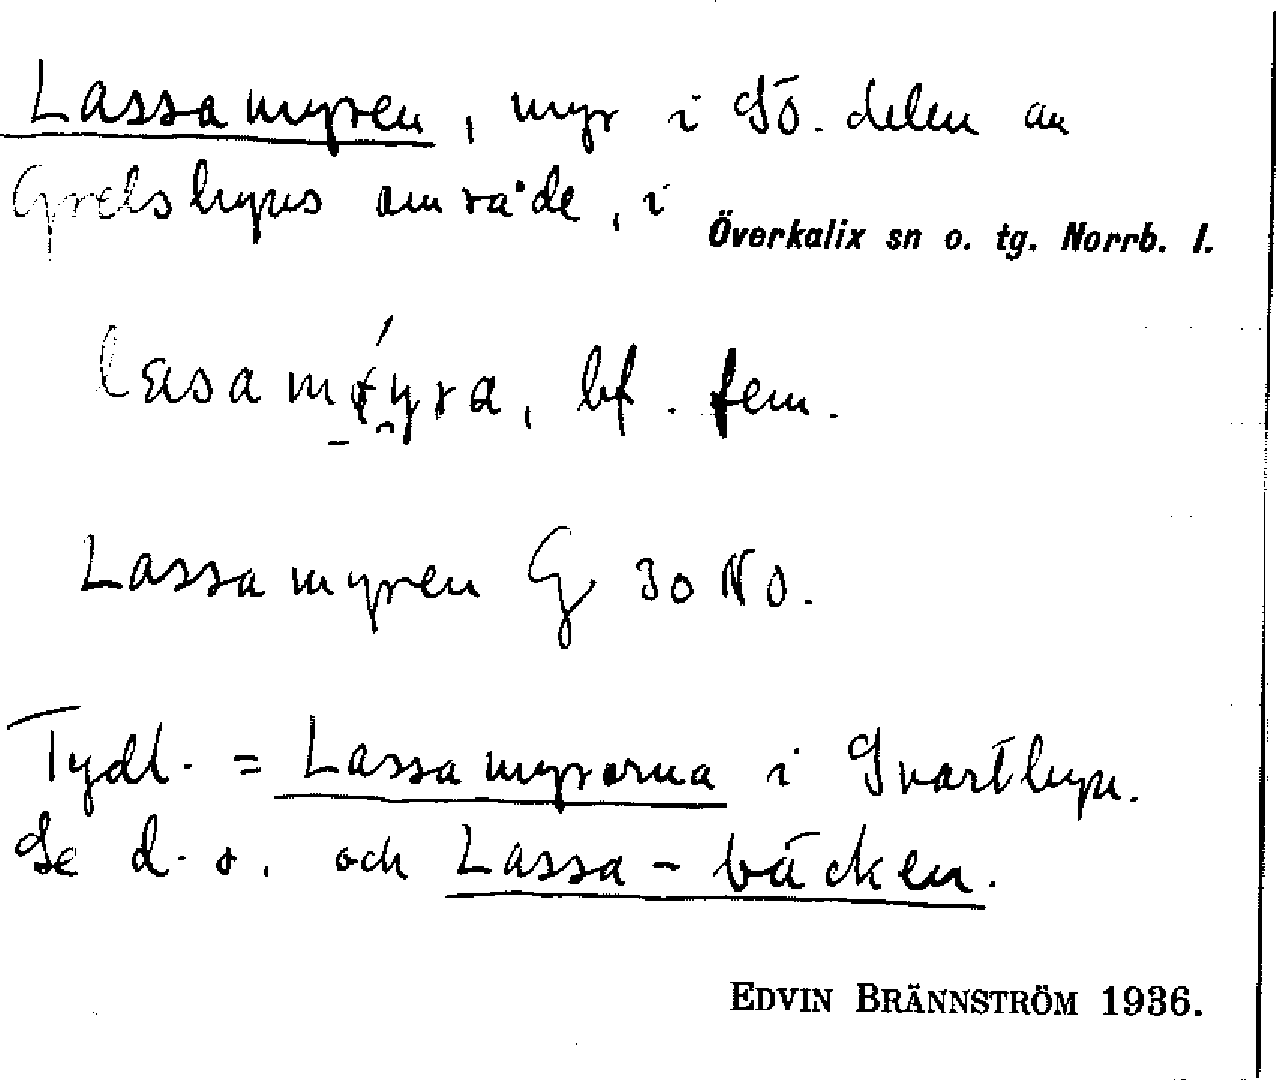 Lassamyren, myr i SÖ. delen av
Grelsbyns område, i Överkalix sn o. tg. Norrb. l.
bf. fem.
Lassamyren G 30 NO.
Tydl. = Lassamyrarna i Svartbyn.
Se d. o. och Lassa-bäcken.
EDVIN BRÄNNSTRÖM 1936.